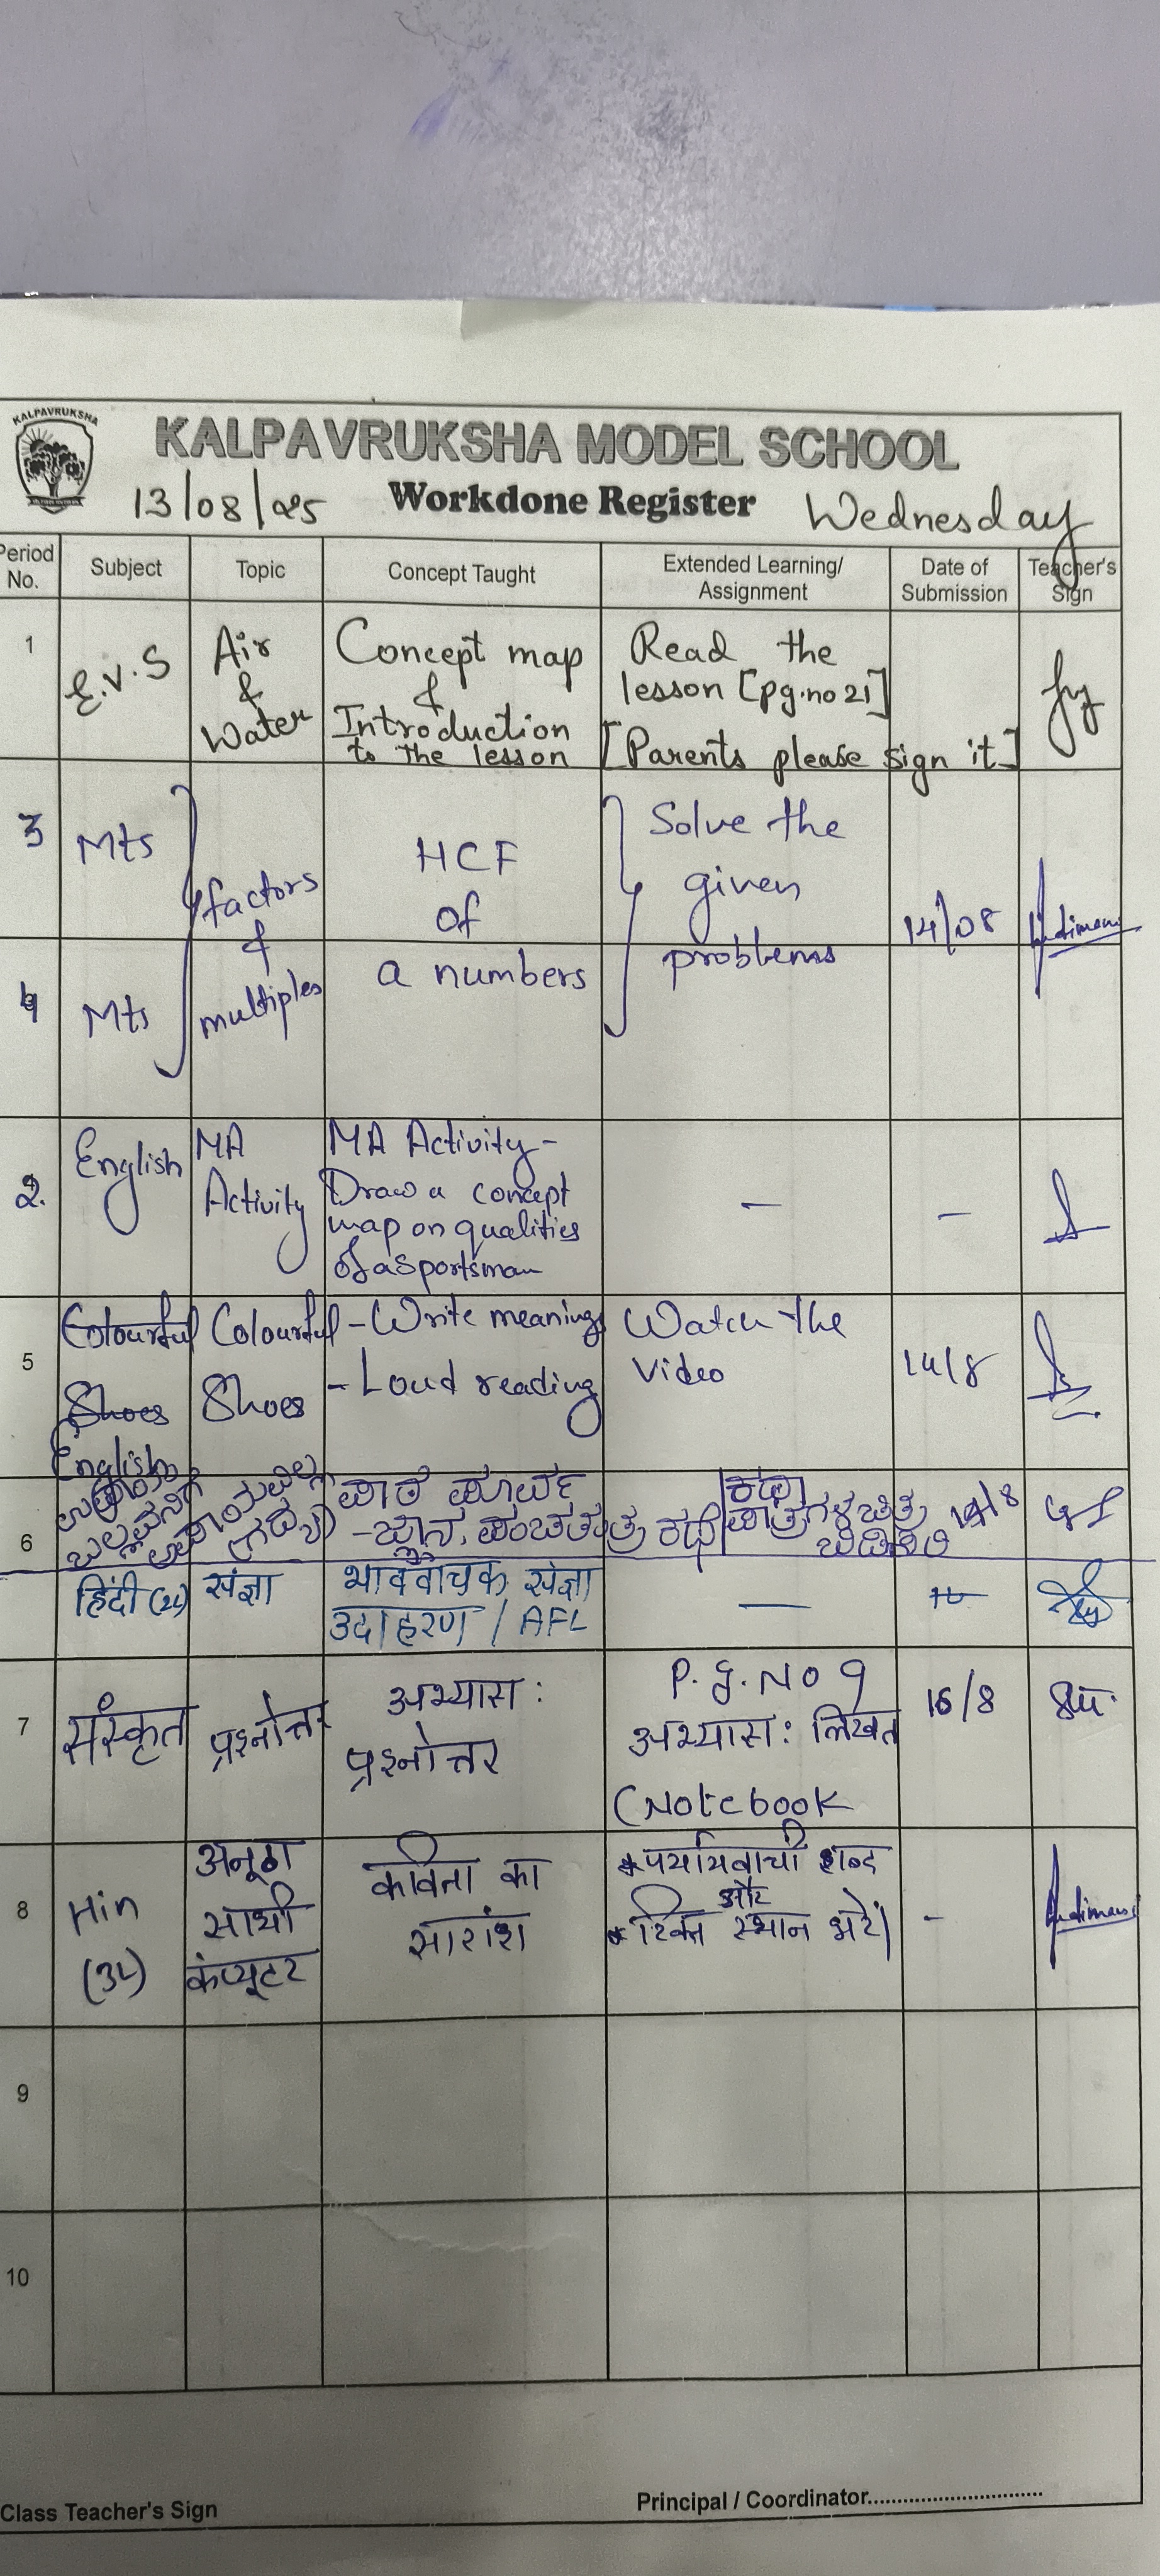 KALPAVRUKSHA
KALPAVRUKSHA MODEL SCHOOL
13/08/25 Workdone Register Wednesday
Period No. Subject Topic Concept Taught Extended Learning/ Assignment Date of Submission Teacher's Sign
1 E.V.S Air & Water Concept map & Introduction to the lesson Read the lesson [pg.no 21] [Parents please sign it]
3 Mts factors & multiples HCF of a numbers Solve the given problems 14/08
4 Mts
2. English MA Activity MA Activity - Draw a concept map on qualities of a sportsman - -
5 Colourful Shoes English Colourful Shoes - Write meanings - Loud reading Watch the video 14/8
6 ಪಾಠ ಪೂರ್ವ - ಜ್ಞಾನ. ಪಂಚತಂತ್ರ ಕಥೆ ಕಥಾ ಪಾತ್ರಗಳ ಚಿತ್ರ ಬಿಡಿಸಿರಿ
हिंदी (2L) संज्ञा भाववाचक संज्ञा उदाहरण / AFL —
7 संस्कृत प्रश्नोत्तर अभ्यास: प्रश्नोत्तर P.g.No 9 अभ्यास: लिखत (Notebook 16/8
8 Hin (3L) अनूठा साथी कंप्यूटर कविता का सारांश * पर्यायवाची शब्द और * रिक्त स्थान भरें। -
9
10
Class Teacher's Sign Principal / Coordinator..............................